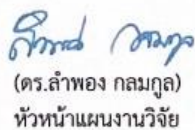 (ดร.ลำพอง กลมกูล)
หัวหน้าแผนงานวิจัย